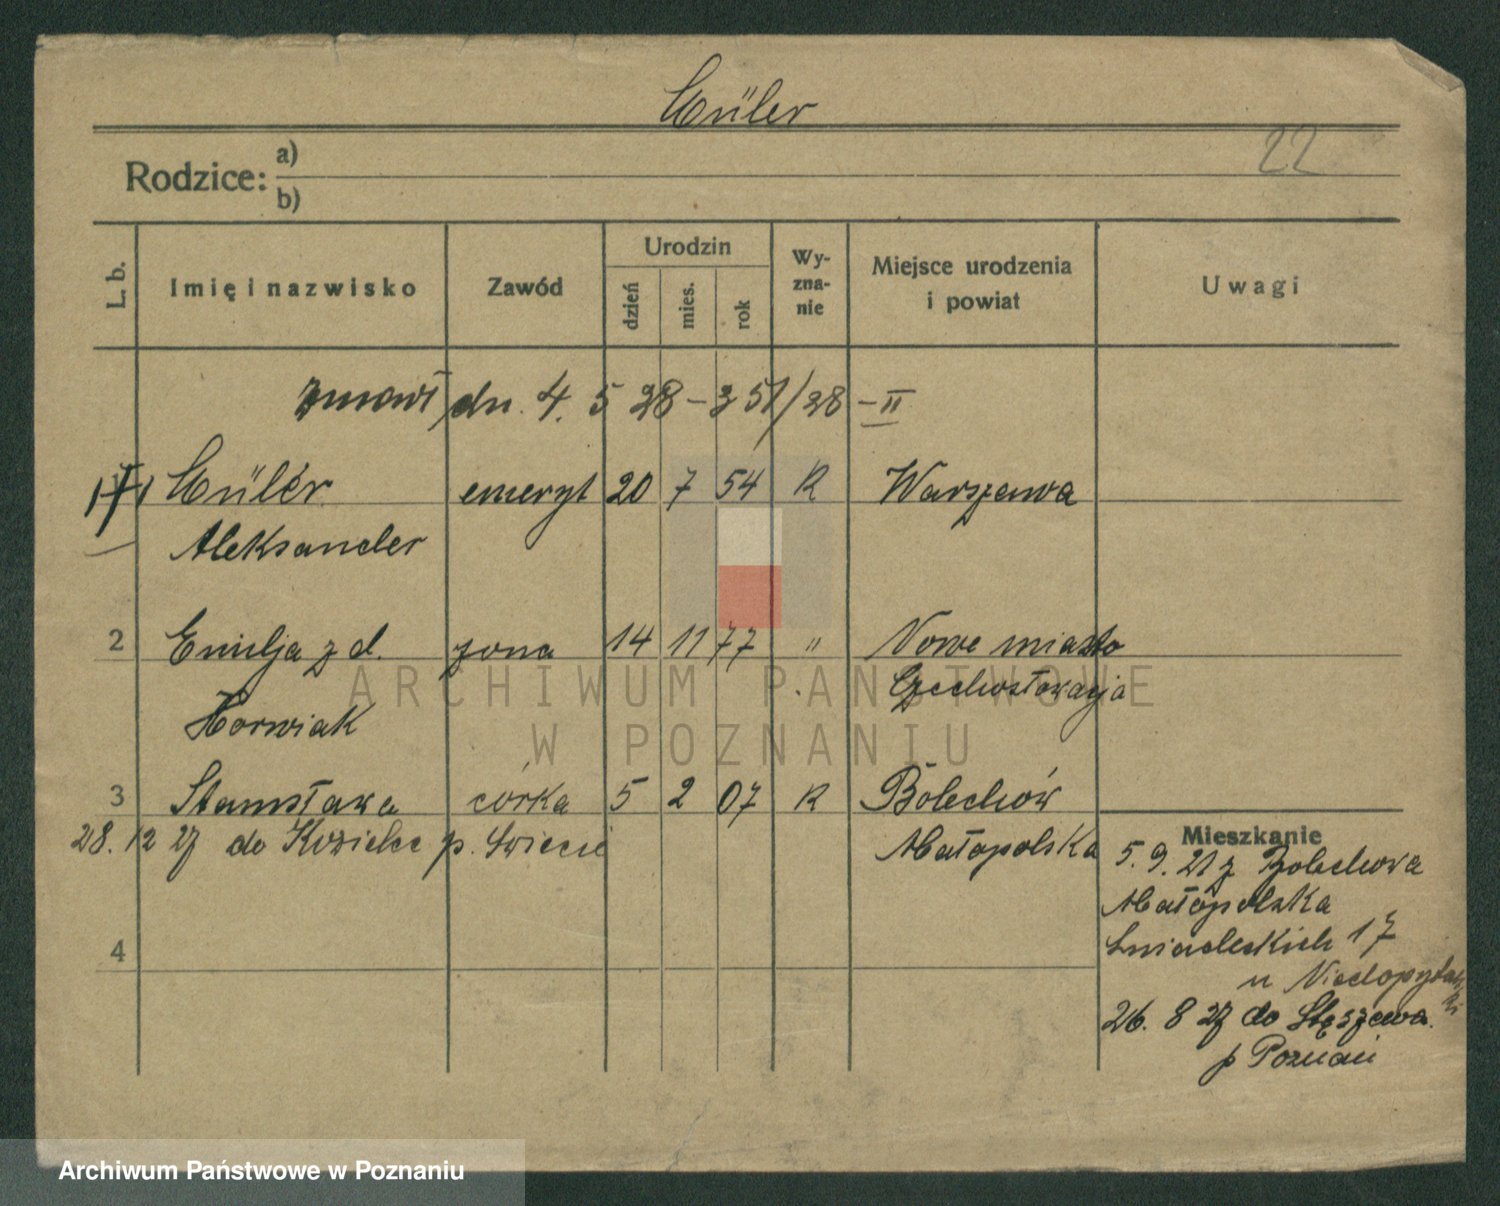 Müler
22
Rodzice: a)
b)
L. b.
Imię i nazwisko
Zawód
Urodzin
dzień
mies.
rok
Wy-
zna-
nie
Miejsce urodzenia
i powiat
Uwagi
zmarł dn. 4. 5 28 – 351/28 – II
1 Müler emeryt 20 7 54 R Warszawa
Aleksander
2 Emilja z d. żona 14 11 77 " Nowe miasto
Czechosłowacja
Horwiak
3 Stanisława córka 5 2 07 R Bolechów
28. 12 27 do Kozielec p. Świecie Małopolska
4
Mieszkanie
5. 9. 21 z Bolechowa
Małopolska
Śniadeckich 17
u Niedopytalski
26. 8 27 do Stęszewa.
p Poznań
ARCHIWUM PAŃSTWOWE
W POZNANIU
Archiwum Państwowe w Poznaniu